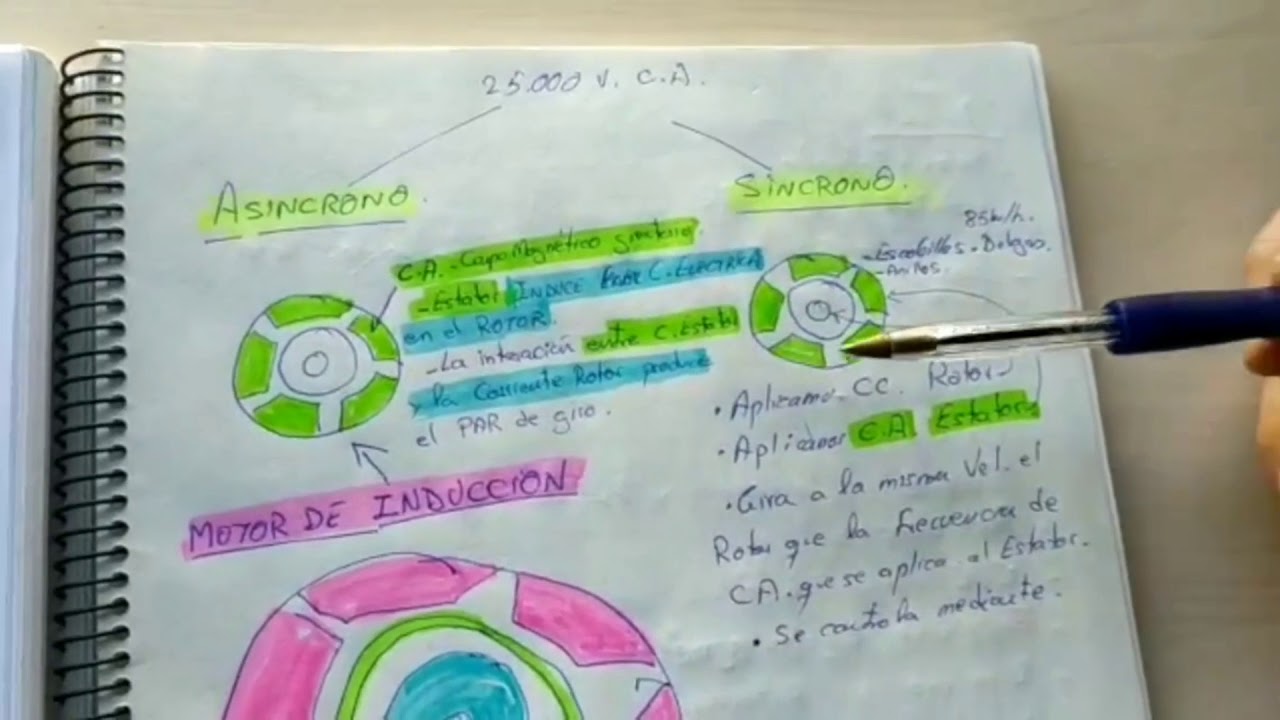 25.000 V. C.A.
ASINCRONO.
SINCRONO.
C.A. - Capo Magnético giratorio.
- Estator INDUCE PAR C. ELECTRICA
en el ROTOR.
- La interación entre C. Estator
y la Corriente Rotor produce
el PAR de giro.
MOTOR DE INDUCCION
85km/h.
- Escobillas -
- Anillos.
• Aplicamos CC. Rotor
• Aplicamos C.A. Estator
• Gira a la misma Vel. el
Rotor que la frecuencia de
CA. que se aplica al Estator.
• Se controla mediante.